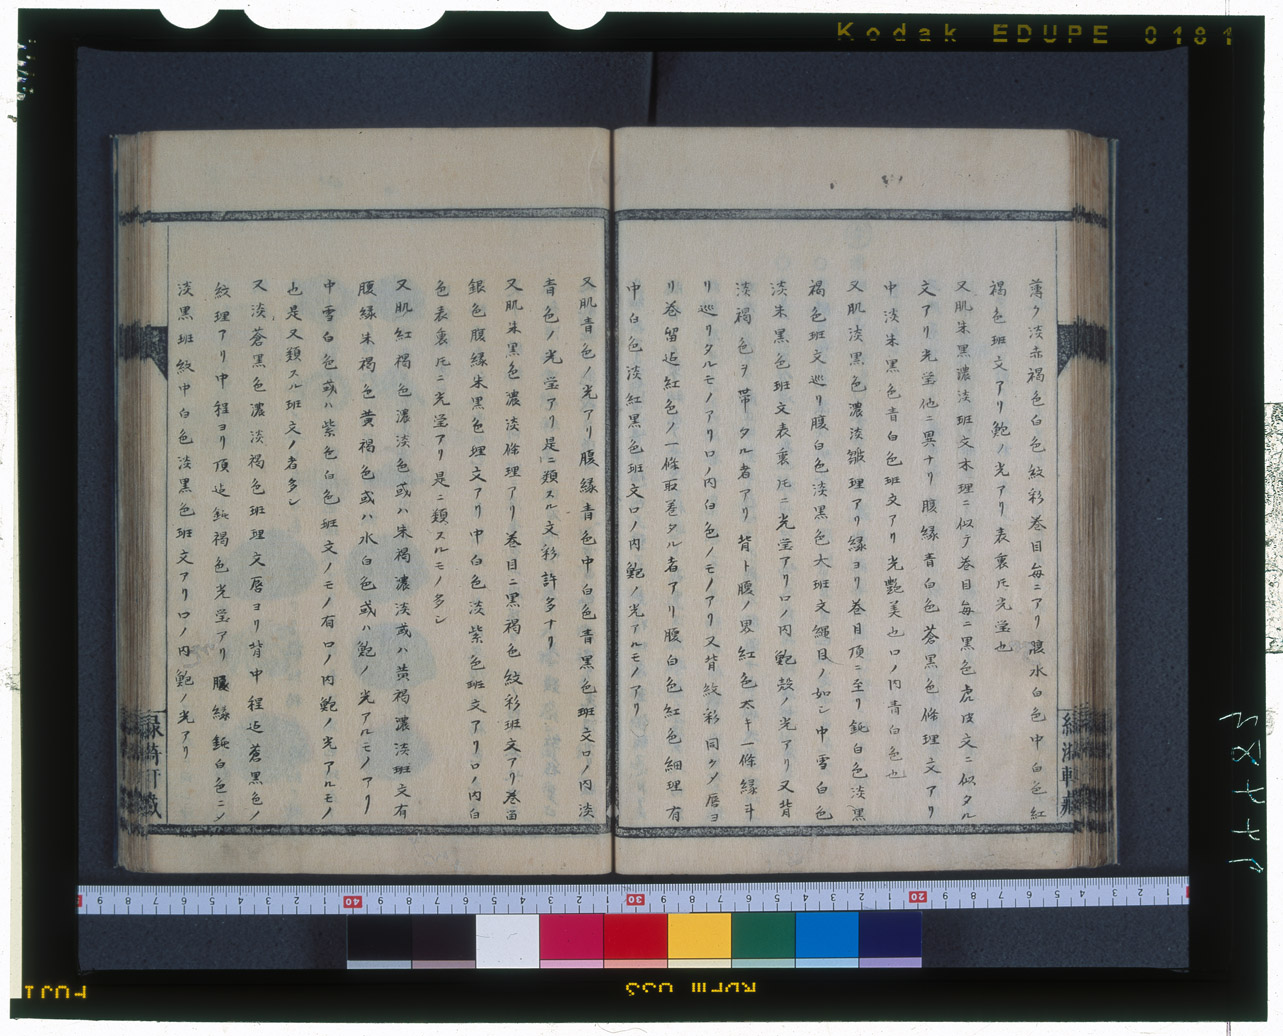 Kodak EDUPE 0181
薄ク淡赤褐色白色紋彩巻目毎ニアリ腹水白色中白色紅
褐色班文アリ鮑ノ光アリ表裏庀光瑩也
又肌朱黒濃淡班文木理ニ似テ巻目毎ニ黒色虎皮文ニ似タル
文アリ光瑩他ニ異ナリ腹縁青白色蒼黒色條理文アリ
中淡朱黒色青白色班文アリ光艷美也口ノ内青白色也
又肌淡黒色濃淡皺理アリ縁ヨリ巻目頂ニ至リ鈍白色淡黒
褐色班文巡リ腹白色淡黒色大班文縄目ノ如シ中雪白色
淡朱黒色班文表裏庀ニ光瑩アリ口ノ内鮑殻ノ光アリ又背
淡褐色ヲ帯タル者アリ背ト腹ノ界紅色太キ一條縁斗
リ巡リタルモノアリ口ノ内白色ノモノアリ又背紋彩同クメ唇ヨ
リ巻留迠紅色ノ一條取巻タル者アリ腰白色紅色細理有
中白色淡紅黒色班文口ノ内鮑ノ光アルモノアリ
又肌青色ノ光アリ腹縁青色中白色青黒色班文口ノ内淡
青色ノ光瑩アリ是ニ類スル文彩許多ナリ
又肌朱黒色濃淡條理アリ巻目ニ黒褐色紋彩班文アリ巻面
銀色腹縁朱黒色理文アリ中白色淡紫色班文アリ口ノ内白
色表裏庀ニ光瑩アリ是ニ類スルモノ多シ
又肌紅褐色濃淡色或ハ朱褐濃淡或ハ黄褐濃淡班文有
腹縁朱褐色黄褐色或ハ水白色或ハ鮑ノ光アルモノアリ
中雪白色或ハ紫色白色班文ノモノ有口ノ内鮑ノ光アルモノ
也是又類スル班文ノ者多シ
又淡蒼黒色濃淡褐色班理文唇ヨリ背中程迠蒼黒色ノ
紋理アリ中程ヨリ頂迠鈍褐色光瑩アリ腹縁鈍白色ニシ
淡黒班紋中白色淡黒色班文アリ口ノ内鮑ノ光アリ
FUJI
RDPIII 035